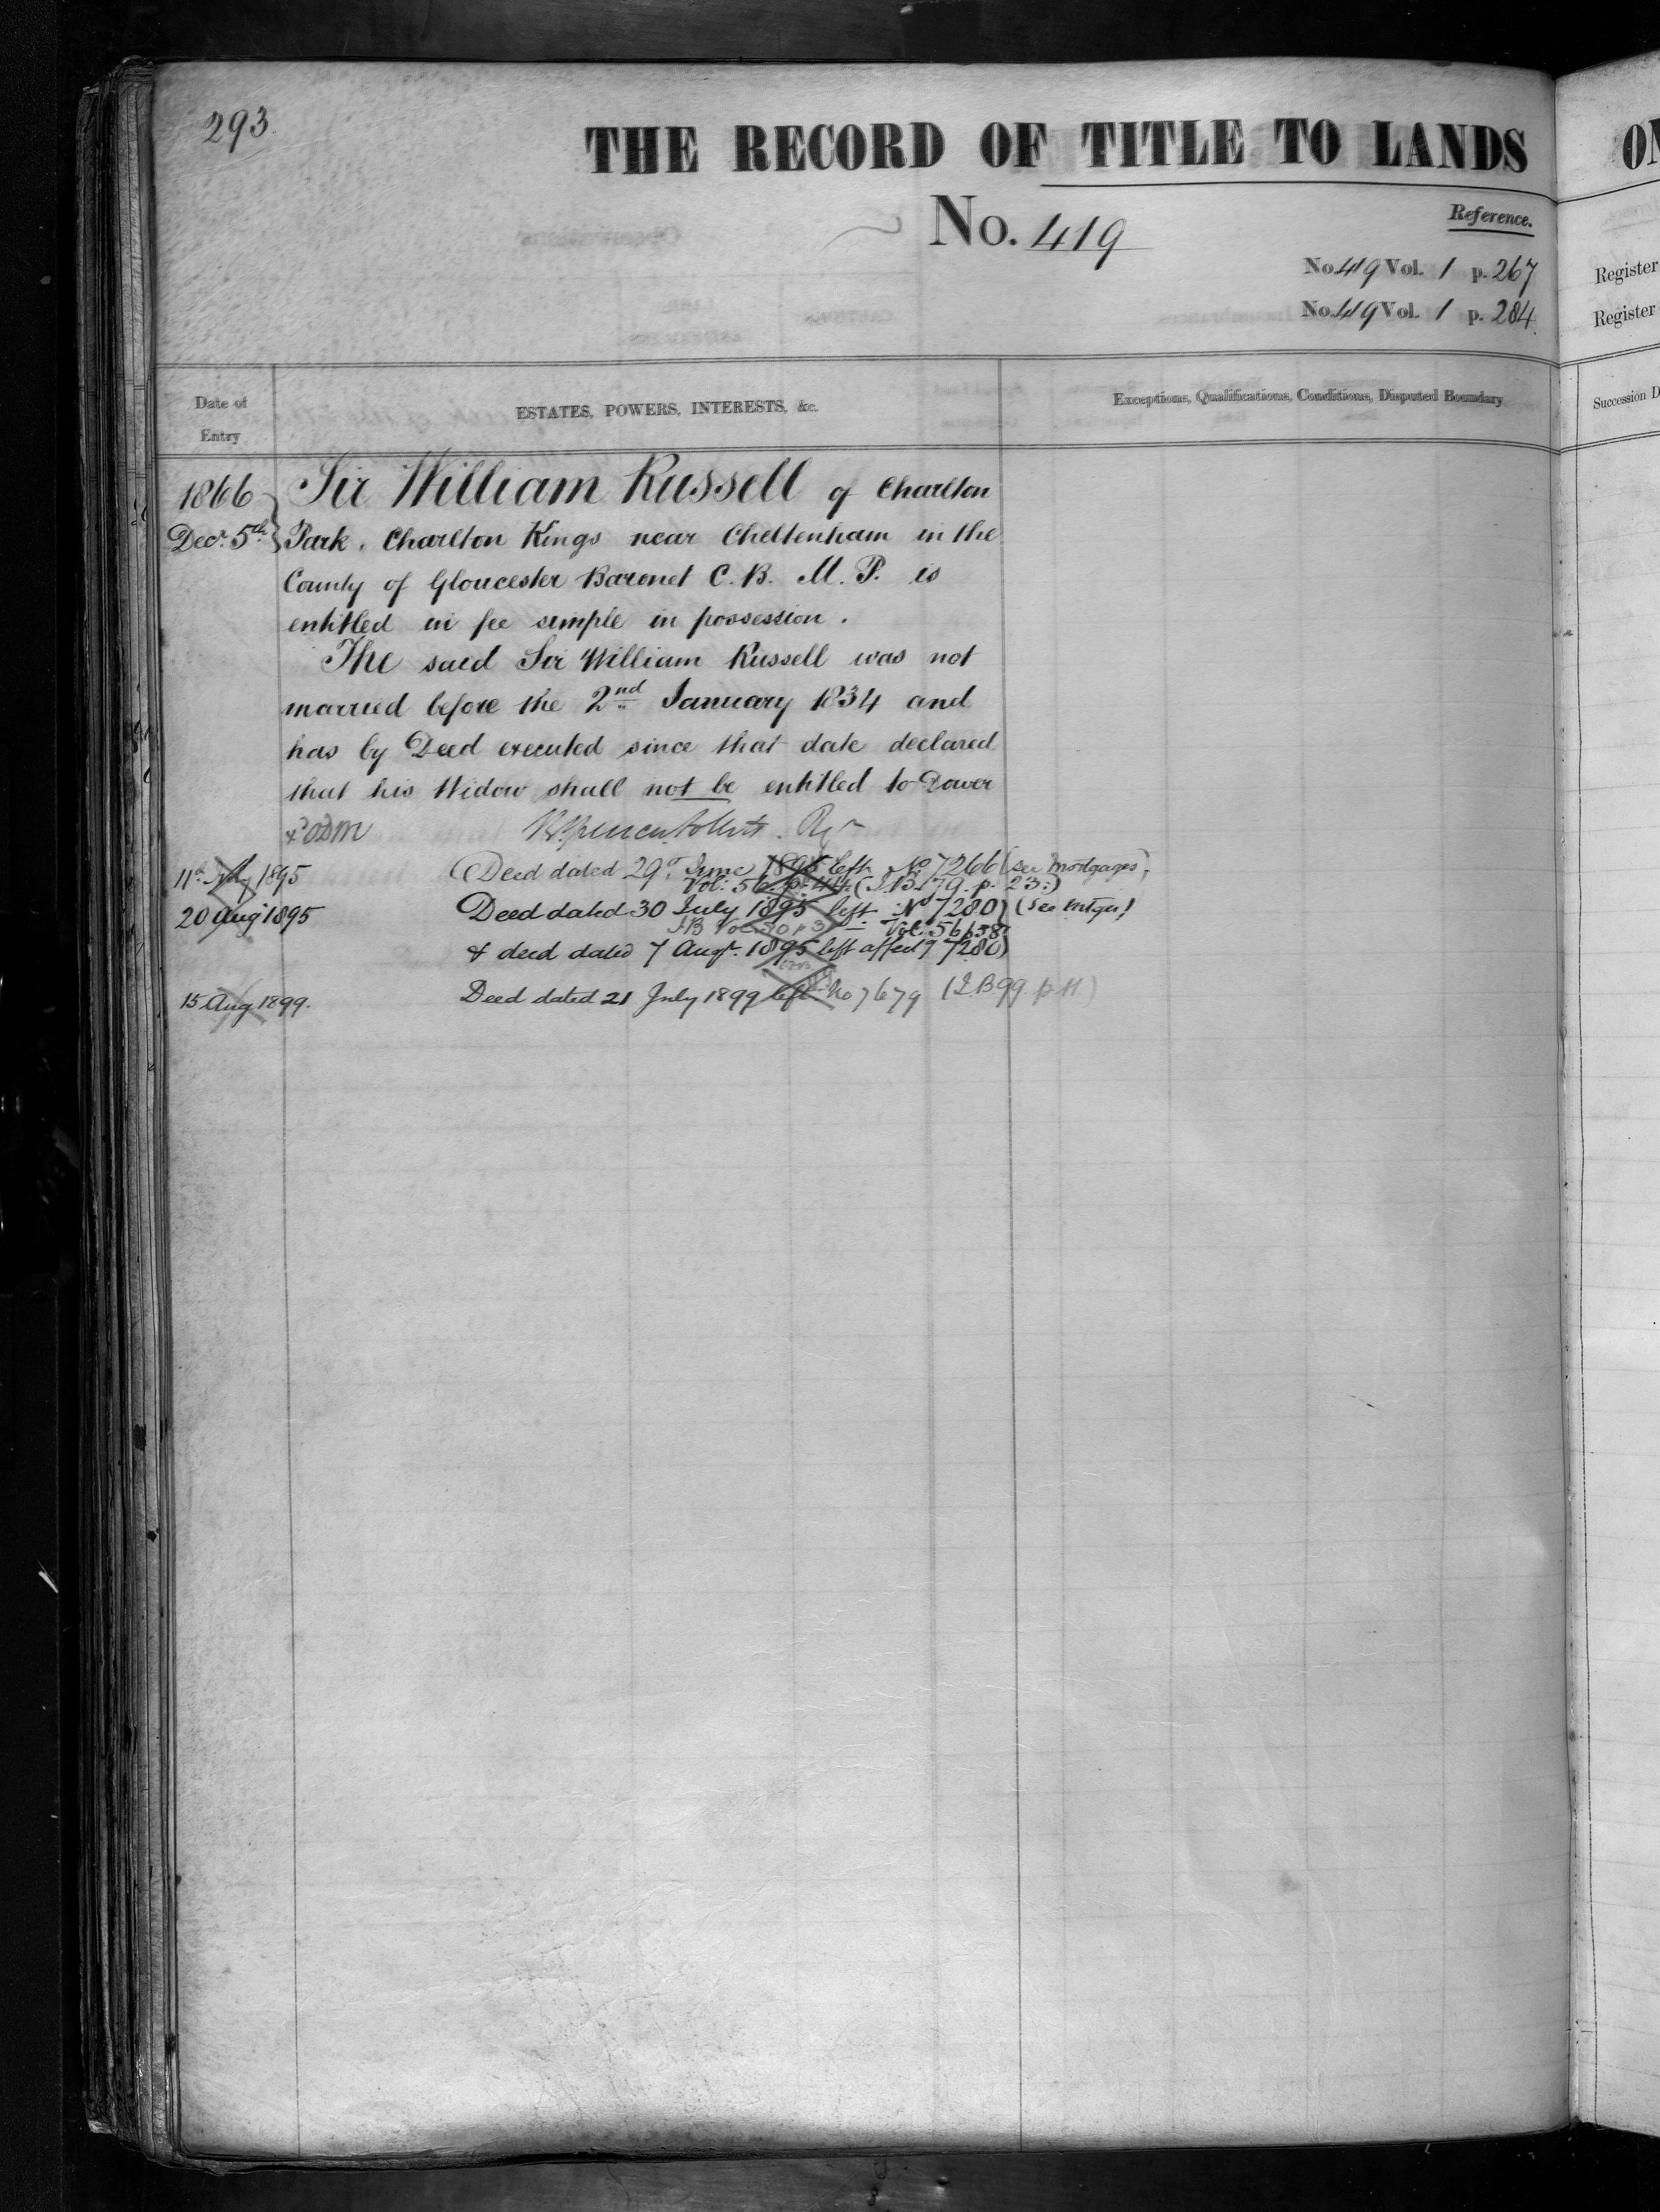 293
THE RECORD OF TITLE TO LANDS
No. 419
Reference.
No. 419 Vol. 1 p. 267
No. 419 Vol. 1 p. 284
Date of Entry
ESTATES, POWERS, INTERESTS, &c.
Exceptions, Qualifications, Conditions, Disputed Boundary
1866
Decr. 5th
Sir William Russell of Charlton
Park, Charlton Kings near Cheltenham in the
County of Gloucester Baronet C.B. M.P. is
entitled in fee simple in possession.
The said Sir William Russell was not
married before the 2nd January 1834 and
has by Deed executed since that date declared
that his Widow shall not be entitled to Dower
11th July 1895
Deed dated 29th June 1895 left No 7266 (see mortgages)
Vol: 56 p. 44 (I.B. 79. p. 23.)
20 Aug 1895
Deed dated 30 July 1895 left No 7280) (see mtges)
Vol. 56 p 58
& deed dated 7 Augt. 1895 left affectg 7280)
15 Aug 1899.
Deed dated 21 July 1899 left No 7679 (I.B 99. p 11)
ON
Register
Register
Succession D